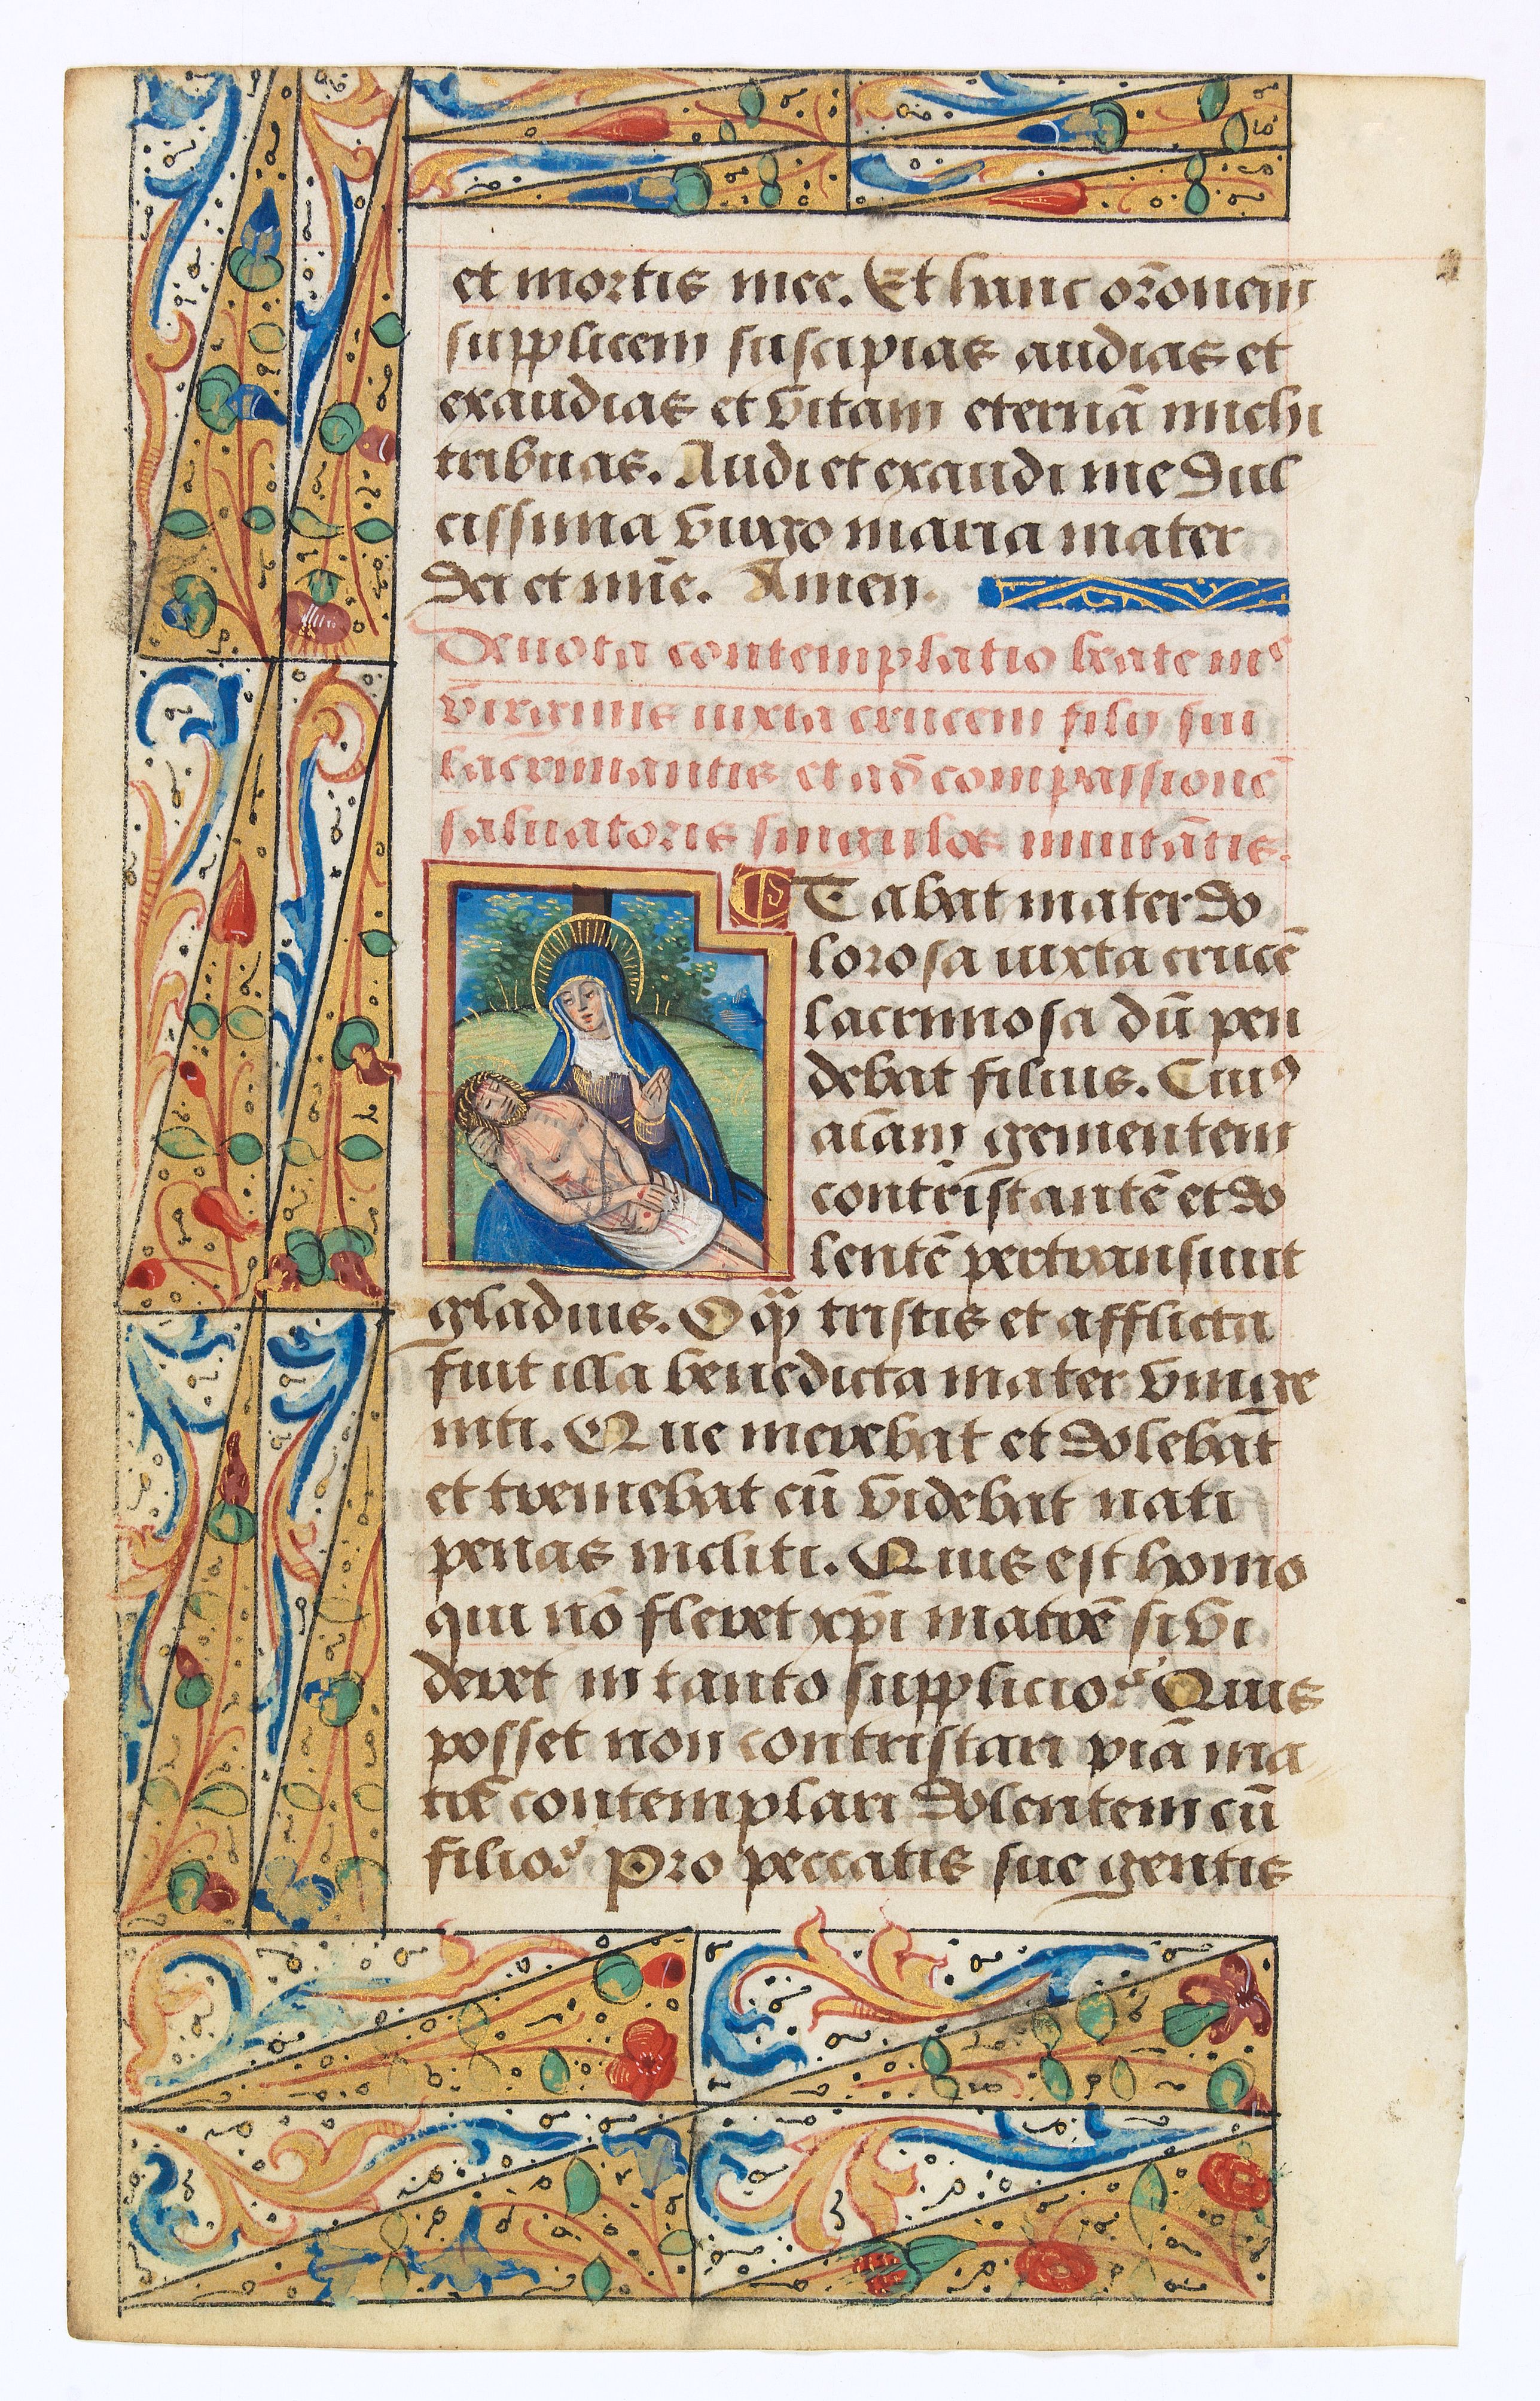 et mortis mee. Et hanc orõnem
supplicem suscipias audias et
exaudias et vitam eternã michi
tribuas. Audi et exaudi me dul
cissima virgo maria mater
dei et mīe. Amen.
Deuota contemplatio beate mᵉ
virginis iuxta crucem filij sui
lacrimantis et ad compassionē
saluatoris singulos inuitātis.
Stabat mater do
lorosa iuxta crucē
lacrimosa dū pen
debat filius. Cuiꝰ
aīam gementem
contristantē et do
lentē pertransiuit
gladius. O qͣ tristis et afflicta
fuit illa benedicta mater vnige
niti. Que merebat et dolebat
et tremebat cū videbat nati
penas incliti. Quis est homo
qui nō fleret xpī matrē si vi
deret in tanto supplicio? Quis
posset non contristari piā ma
trē contemplari dolentem cū
filio? Pro peccatis sue gentis